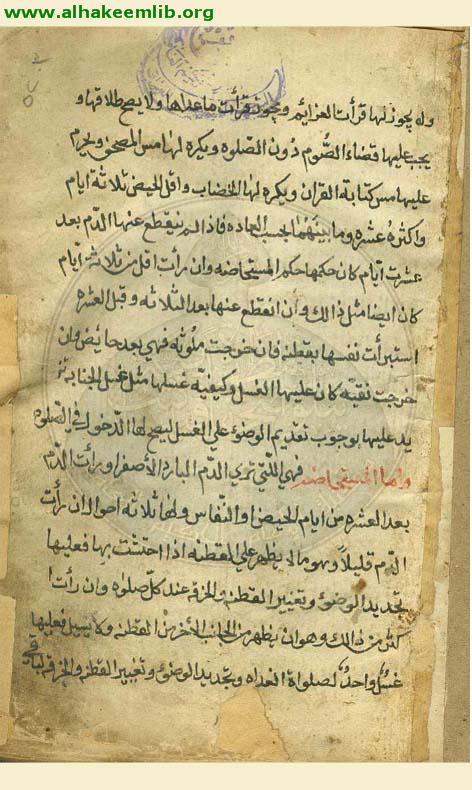 www.alhakeemlib.org
وله يجوز لها قرأت العزائم ويجوز قرأت ماعداها ولا يصح طلاقها و
يجب عليها قضاء الصُّوم دُون الصّلوه ويكره لها مس المصحف ويحرم
عليها مس كتابة القران ويكره لها الخضاب واقل الحيض ثلاثة ايام
واكثره عشره وما بينهما بحسب العاده فاذا لم ينقطع عنها الدّم بعد
عشرت ايّام كان حكمها حكم المستحاضه وان رأت اقل من ثلاثة ايّام
كان ايضا مثل ذالك وان انقطع عنها بعد الثلاثه وقبل العشره
استبرأت نفسها بقطنه فان خرجت ملوثه فهي بعد حائض وان
خرجت نقيه كان عليها الغسل وكيفيّه غسلها مثل غسل الجنابه تز
يد عليها بوجوب تقديم الوضوء علي الغسل ليصح لها الدّخول في الصّلوه
واما المستحاضه فهي اللّتي تري الدّم البارد الأصفر او رأت الدّم
بعد العشره من ايام الحيض او النّفاس ولها ثلاثه احوال ان رأت
الدّم قليلاً وهو مالا يظهر علي القطنه اذا احتشت بها فعليها
تجديد الوضوء وتغيير القطنه والخرقه عند كلّ صلوه وان رأت ا
كثر من ذالك وهو ان يظهر من الجانب الأخر من القطنه ولا يسيل فعليها
غسلٌ واحدٌ لصلواة الغداه وتجديد الوضوء وتغيير القطن والخرقه لباقي